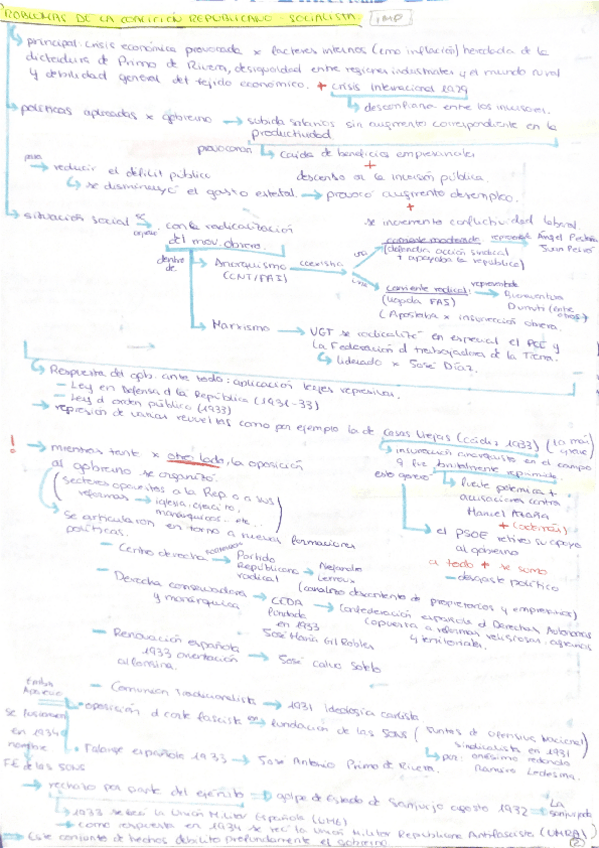 PROBLEMAS DE LA COALICIÓN REPUBLICANO - SOCIALISTA. IMP
principal: crisis económica provocada x factores internos (como inflación) heredada de la
dictadura de Primo de Rivera, desigualdad entre regiones industriales y el mundo rural
y debilidad general del tejido económico. + crisis Internacional 1929
desconfianza entre los inversores.
políticas aplicadas x gobierno → subida salarios sin aumento correspondiente en la
productividad
provocaron caída de beneficios empresariales
+
para → reducir el déficit público descenso de la inversión pública.
se disminuyó el gasto estatal. → provocó aumento desempleo.
+
se incremento conflictividad laboral.
situación social con la radicalización
del mov. obrero.
corriente moderada Angel Pestaña
(defendía acción sindical Juan Peiró
+ apoyaba la república)
dentro de Anarquismo coexistía
(CNT/FAI)
corriente radical: representada
(ligada FAI) Buenaventura
Durruti (entre otros)
(Apostaba x insurrección obrera.
Marxismo → UGT se radicalizó en especial el PCE y
la Federación d trabajadores de la Tierra.
liderado x José Díaz.
Respuesta del gob. ante todo: aplicación leyes represivas.
- Ley en Defensa d la República (1931-33)
- Ley d orden público (1933)
→ represión de varias revueltas como por ejemplo la de Casas Viejas (Cádiz, 1933) (la más grave)
insurrección anarquista en el campo
q fue brutalmente reprimida.
! → mientras tanto x otro lado, la oposición
al gobierno se organizó.
esto generó fuerte polémica +
acusaciones contra
Manuel Azaña
(sectores opuestos a la Rep o a sus
reformas → iglesia, ejército,
monárquicos... etc..)
+ (además)
el PSOE retiró su apoyo
al gobierno
se articularon en torno a nuevas formaciones
políticas.
a todo + se sumo
- desgaste político
- Centro derecha → Partido
Republicano → Alejandro
radical Lerroux
(canalizo descontento de propietarios y empresarios)
- Derecha conservadora → CEDA → Confederación española d Derechas Autónomas
y monárquica fundada (opuesta a reformas religiosas, agrarias
en 1933 y territoriales.
José María Gil Robles
- Renovación española
1933 orientación → José Calvo Sotelo
alfonsina.
- Comunión Tradicionalista → 1931 ideología carlista
Ambas
- oposición d corte fascista fundación de las JONS (Juntas de Ofensiva Nacional
sindicalista en 1931
por: Onésimo redondo
Ramiro Ledesma.
se fusionan
en 1934
nombre
FE de las JONS
- Falange española 1933 → José Antonio Primo de Rivera.
→ rechazo por parte del ejército → golpe de Estado de Sanjurjo agosto 1932 → La
sanjurjada
1933 se creó la Unión Militar Española (UME)
como respuesta en 1934 se creó la Unión Militar Republicana Antifascista (UMRA)
→ Este conjunto de hechos debilitó profundamente el gobierno.
2